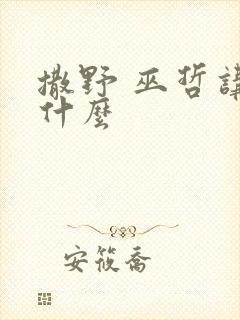 撒野 巫哲講
什麼
安筱喬